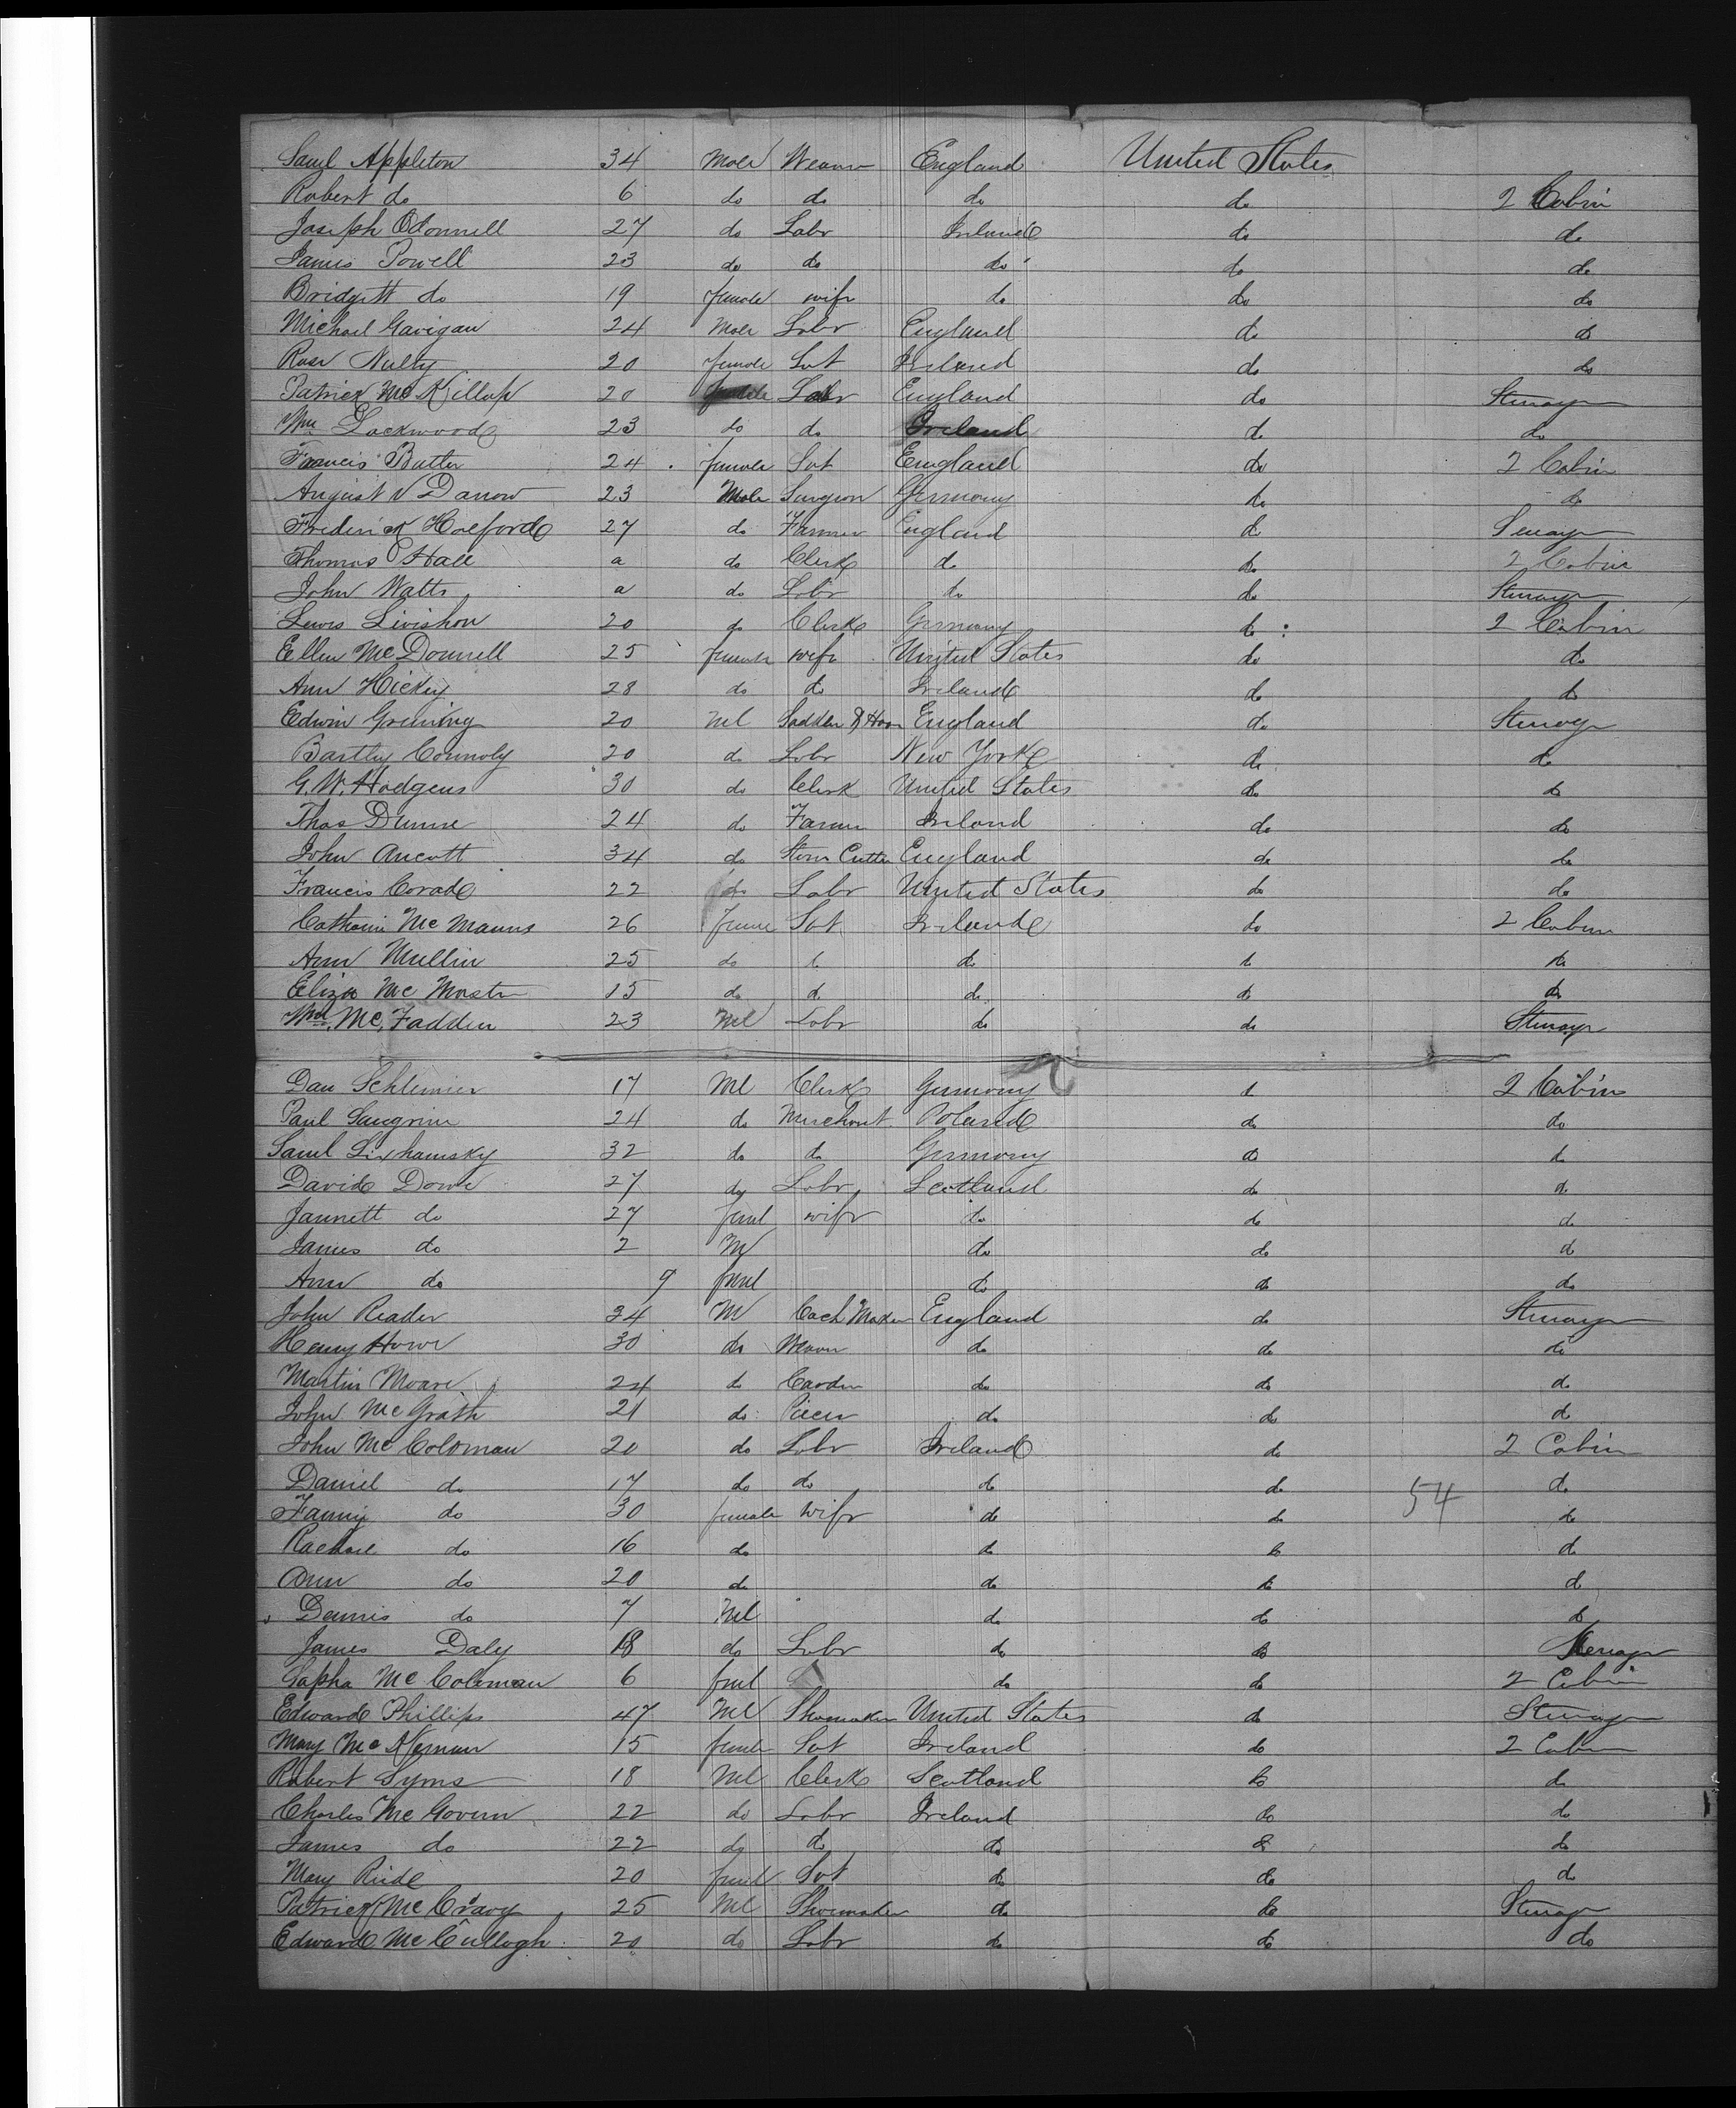 Saml Appleton 34 Male Weaver England United States
Robert do 6 do do do do 2 Cabin
Joseph ODonnell 27 do Labr Ireland do do
James Powell 23 do do do do do
Bridgett do 19 female wife do do do
Michael Gavigan 24 Male Labr England do do
Rose Nulty 20 female Svt Ireland do do
Patrick McKillop 20 Labr England do Sterage
Wm Lockwood 23 do do Ireland do do
Francis Butter 24 female Svt England do 2 Cabin
August V Danow 23 Male Surgeon Germany do do
Frederick Holford 27 do Farmer England do Sterage
Thomas Hall a do Clerk do do 2 Cabin
John Watts a do Labr do do Sterage
Lewis Livishon 20 do Clerk Germany do 2 Cabin
Ellen McDonnell 25 female wife United States do do
Ann Hickey 28 do do Ireland do do
Edwin Grening 20 Ml England do Sterage
Bartley Connoly 20 do Labr New York do do
G. W. Hodgens 30 do Clerk United States do do
Thos Dunne 24 do Farmer Ireland do do
John Ancott 34 do Stone Cutter England do do
Francis Corad 22 do Labr United States do do
Catharine McManus 26 Female Svt Ireland do 2 Cabin
Ann Mullin 25 do do do do do
Eliza McMaster 15 do do do do do
Wm McFadden 23 Ml Labr do do Sterage
Dan Schlenier 17 Ml Clerk Germany do 2 Cabin
Paul Saugrine 24 do Merchant Poland do do
Saml 32 do do Germany do do
David Dowe 27 do Labr Scotland do do
Jannett do 27 feml wife do do do
James do 2 M do do do
Ann do 9 feml do do do
John Reader 34 M Coach Maker England do Sterage
Henry Howe 30 do do do do
Martin Moare 24 do Carder do do do
John McGrath 21 do do do do
John McColoman 20 do Labr Ireland do 2 Cabin
Daniel do 17 do do do do 54 do
Fanny do 30 female wife do do do
Rachael do 16 do do do do
Ann do 20 do do do do
Dennis do 7 Ml do do do
James Daly 18 do Labr do do Sterage
Sopha McColeman 6 feml do do 2 Cabin
Edward Phillips 47 Ml Shomaker United States do Sterage
Mary McKernan 15 female Svt Ireland do 2 Cabin
Robert Syms 18 Ml Clerk Scotland do do
Charles McGovern 22 do Labr Ireland do do
James do 22 do do do do do
Mary Reide 20 feml Svt do do do
Patrick McCravy 25 Ml Shoemaker do do Sterage
Edward McCullogh 20 do Labr do do do